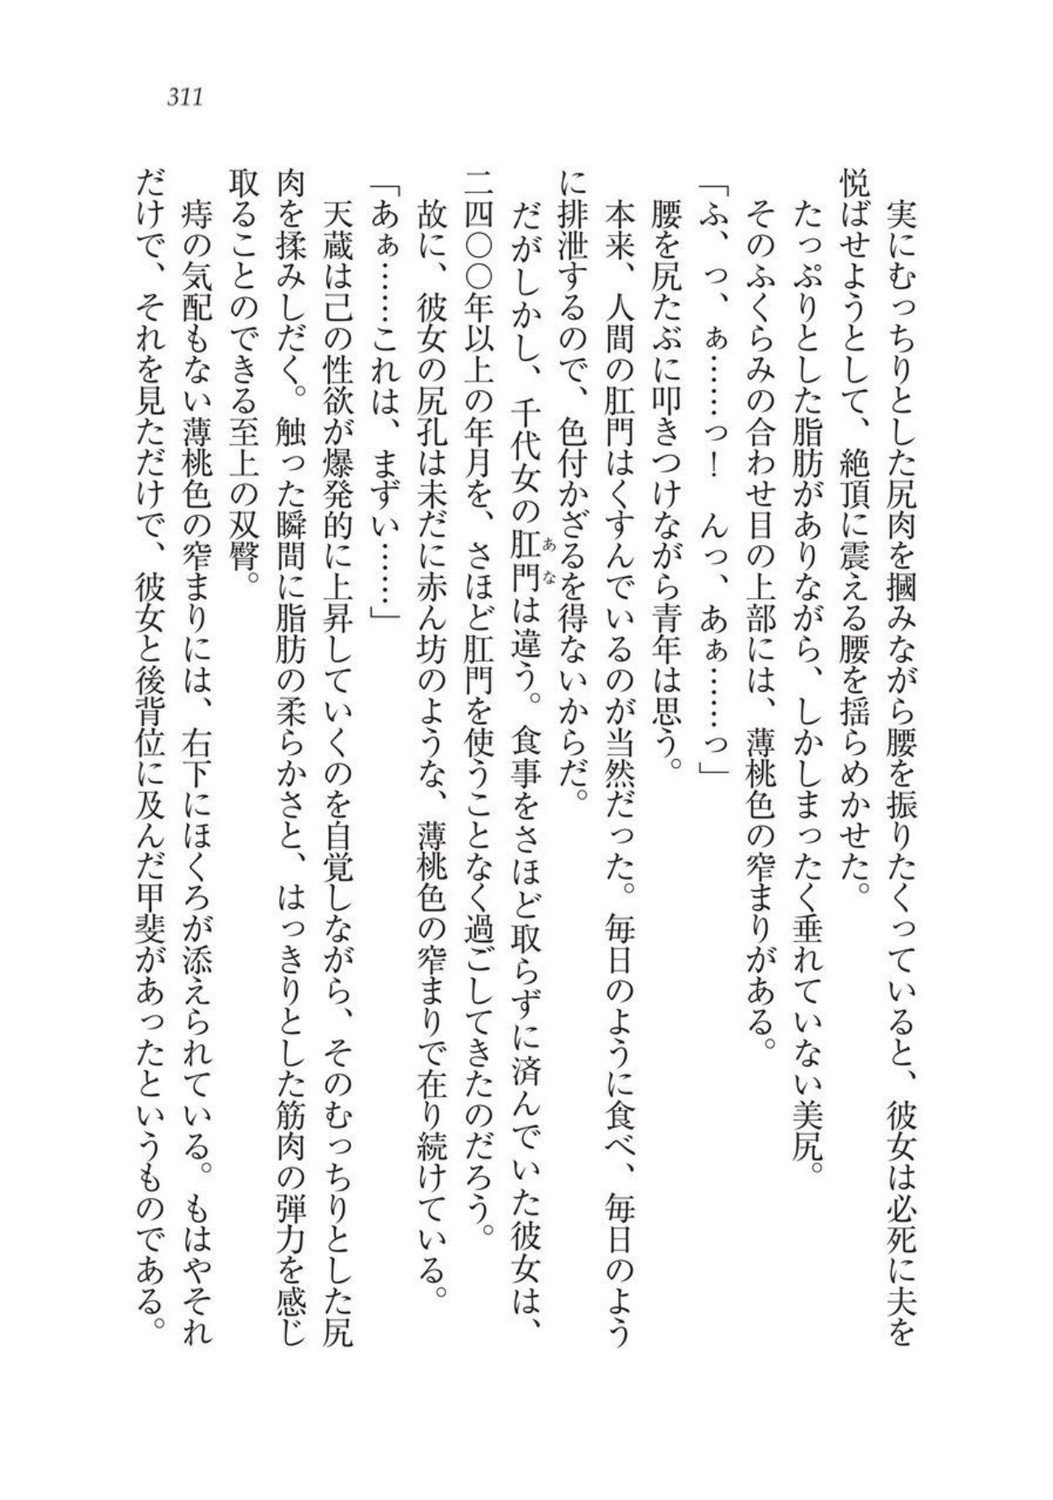 311
実にむっちりとした尻肉を摑みながら腰を振りたくっていると、彼女は必死に夫を
悦ばせようとして、絶頂に震える腰を揺らめかせた。
たっぷりとした脂肪がありながら、しかしまったく垂れていない美尻。
そのふくらみの合わせ目の上部には、薄桃色の窄まりがある。
「ふ、っ、ぁ……っ！　んっ、あぁ……っ」
腰を尻たぶに叩きつけながら青年は思う。
本来、人間の肛門はくすんでいるのが当然だった。毎日のように食べ、毎日のよう
に排泄するので、色付かざるを得ないからだ。
だがしかし、千代女の肛門（あな）は違う。食事をさほど取らずに済んでいた彼女は、
二四〇〇年以上の年月を、さほど肛門を使うことなく過ごしてきたのだろう。
故に、彼女の尻孔は未だに赤ん坊のような、薄桃色の窄まりで在り続けている。
「あぁ……これは、まずい……」
天蔵は己の性欲が爆発的に上昇していくのを自覚しながら、そのむっちりとした尻
肉を揉みしだく。触った瞬間に脂肪の柔らかさと、はっきりとした筋肉の弾力を感じ
取ることのできる至上の双臀。
痔の気配もない薄桃色の窄まりには、右下にほくろが添えられている。もはやそれ
だけで、それを見ただけで、彼女と後背位に及んだ甲斐があったというものである。